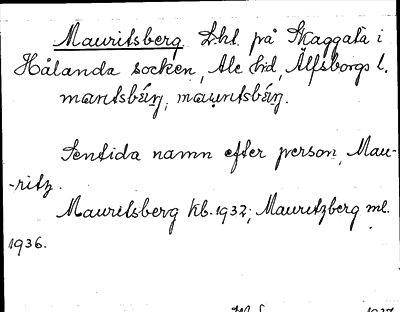 Mauritsberg Lht. på Skaggata i
Hålanda socken, Ale hd, Älfsborgs l.
maritsbérj, mauritsbérj.
Sentida namn efter person, Mau-
-ritz.
Mauritsberg kb. 1932; Mauritzberg ml.
1936.